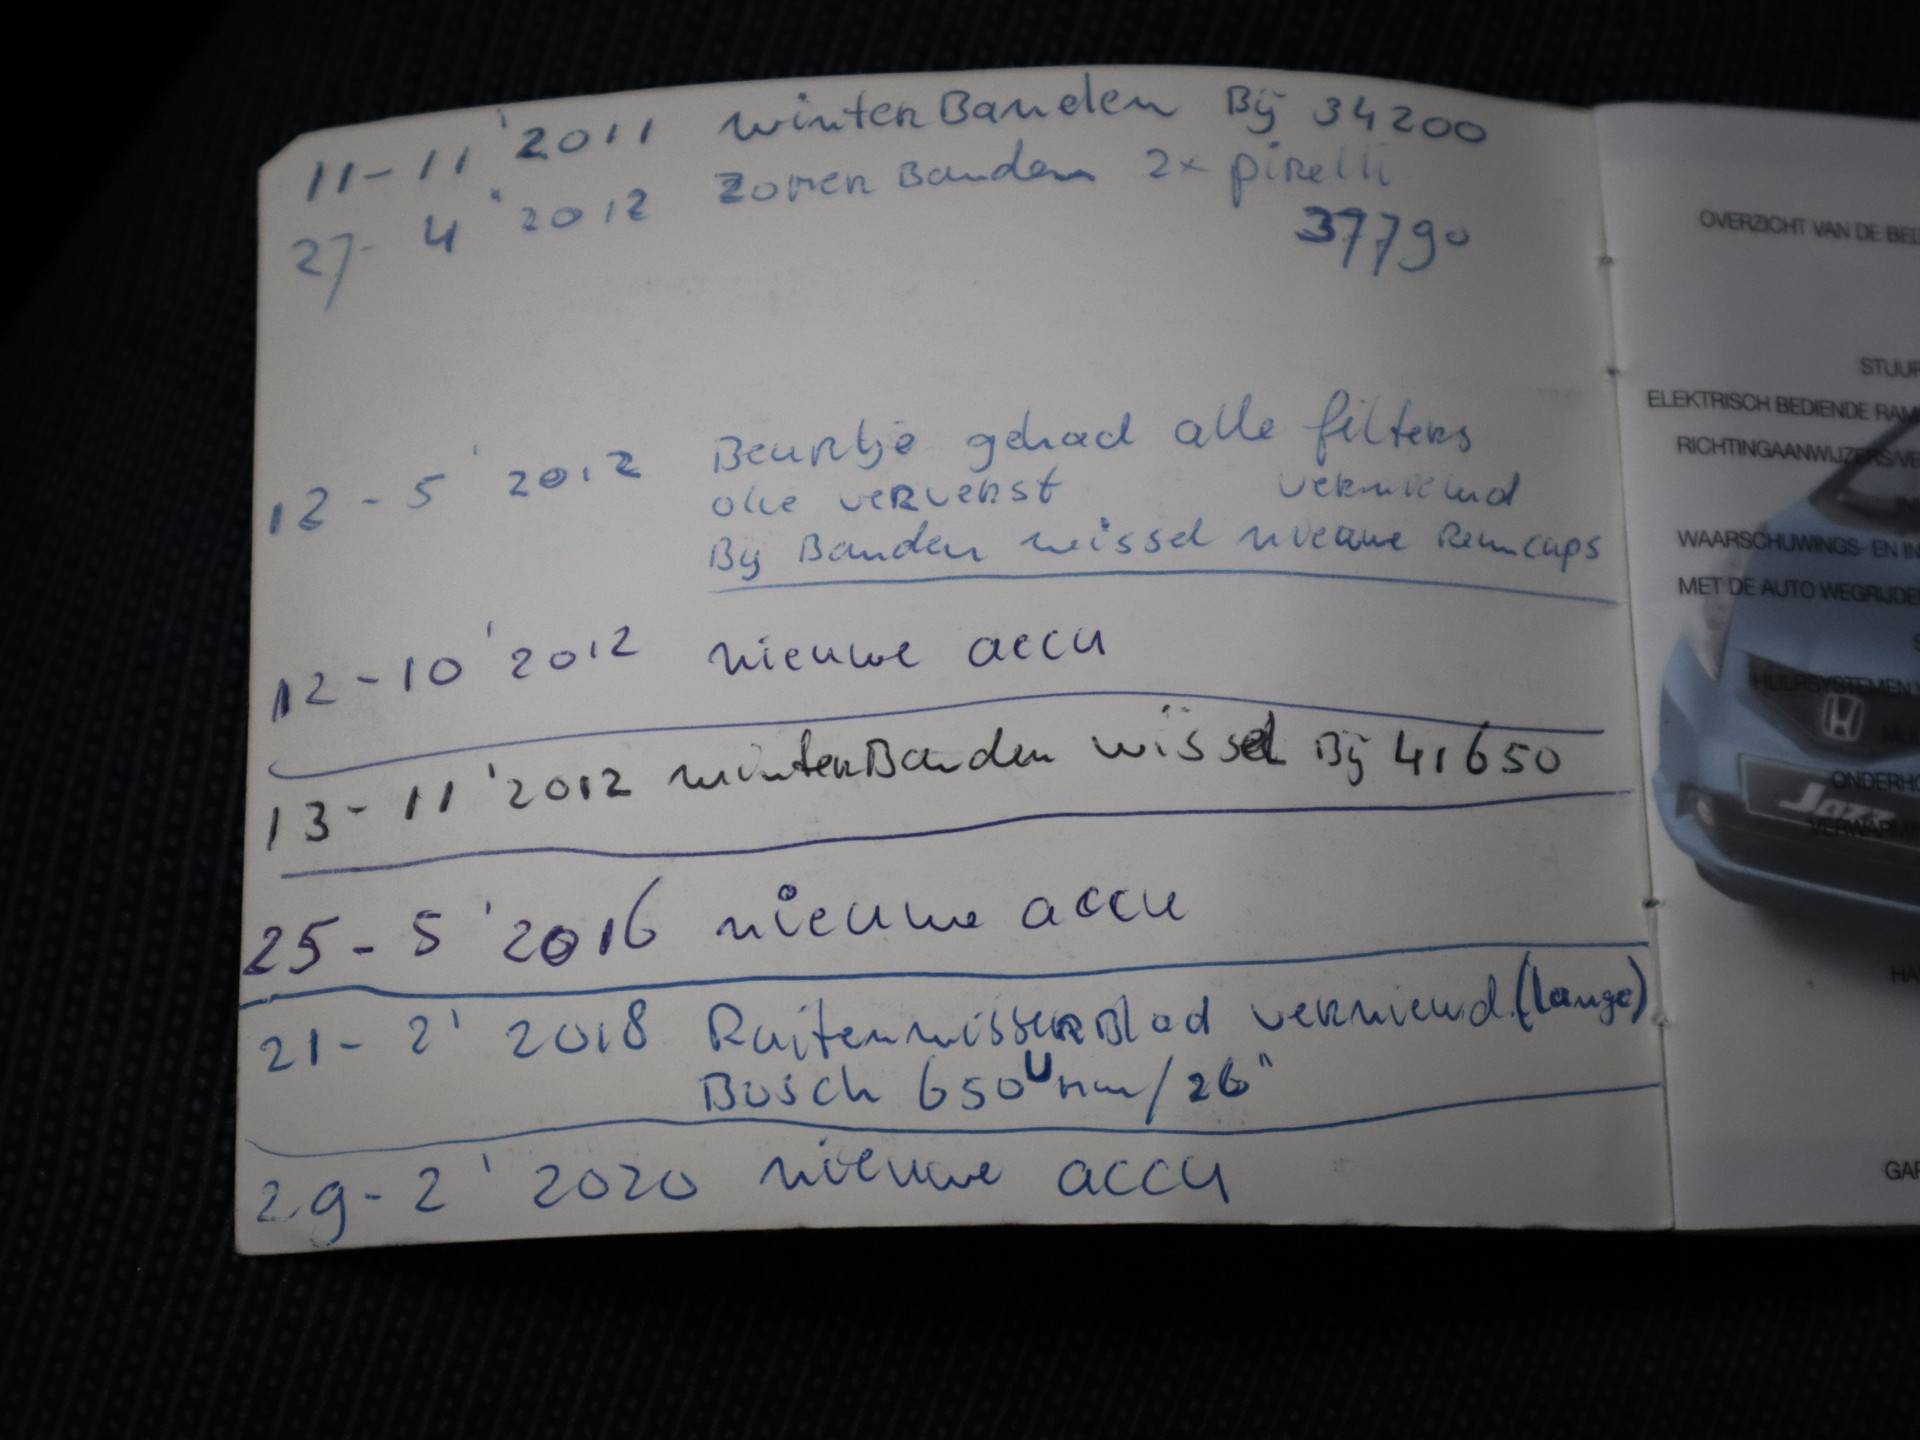 11-11 '2011 winterBanden Bij 34200
27- 4 '2012 Zomer Banden 2x pirelli
37790
12 - 5 ' 2012 Beurtje gehad alle filters
olie ververst vernieuwd
Bij Banden wissel nieuwe Remcups
12 - 10 ' 2012 nieuwe accu
13 - 11 ' 2012 winterBanden wissel Bij 41650
25 - 5 ' 2016 nieuwe accu
21 - 2 ' 2018 RuitenwisserBlad vernieuwd. (Lange)
Bosch 650 mm/26"
29 - 2 ' 2020 nieuwe accu
OVERZICHT VAN DE
ELEKTRISCH BEDIENDE
WAARSCHUWINGS- EN
MET DE AUTO
Jazz